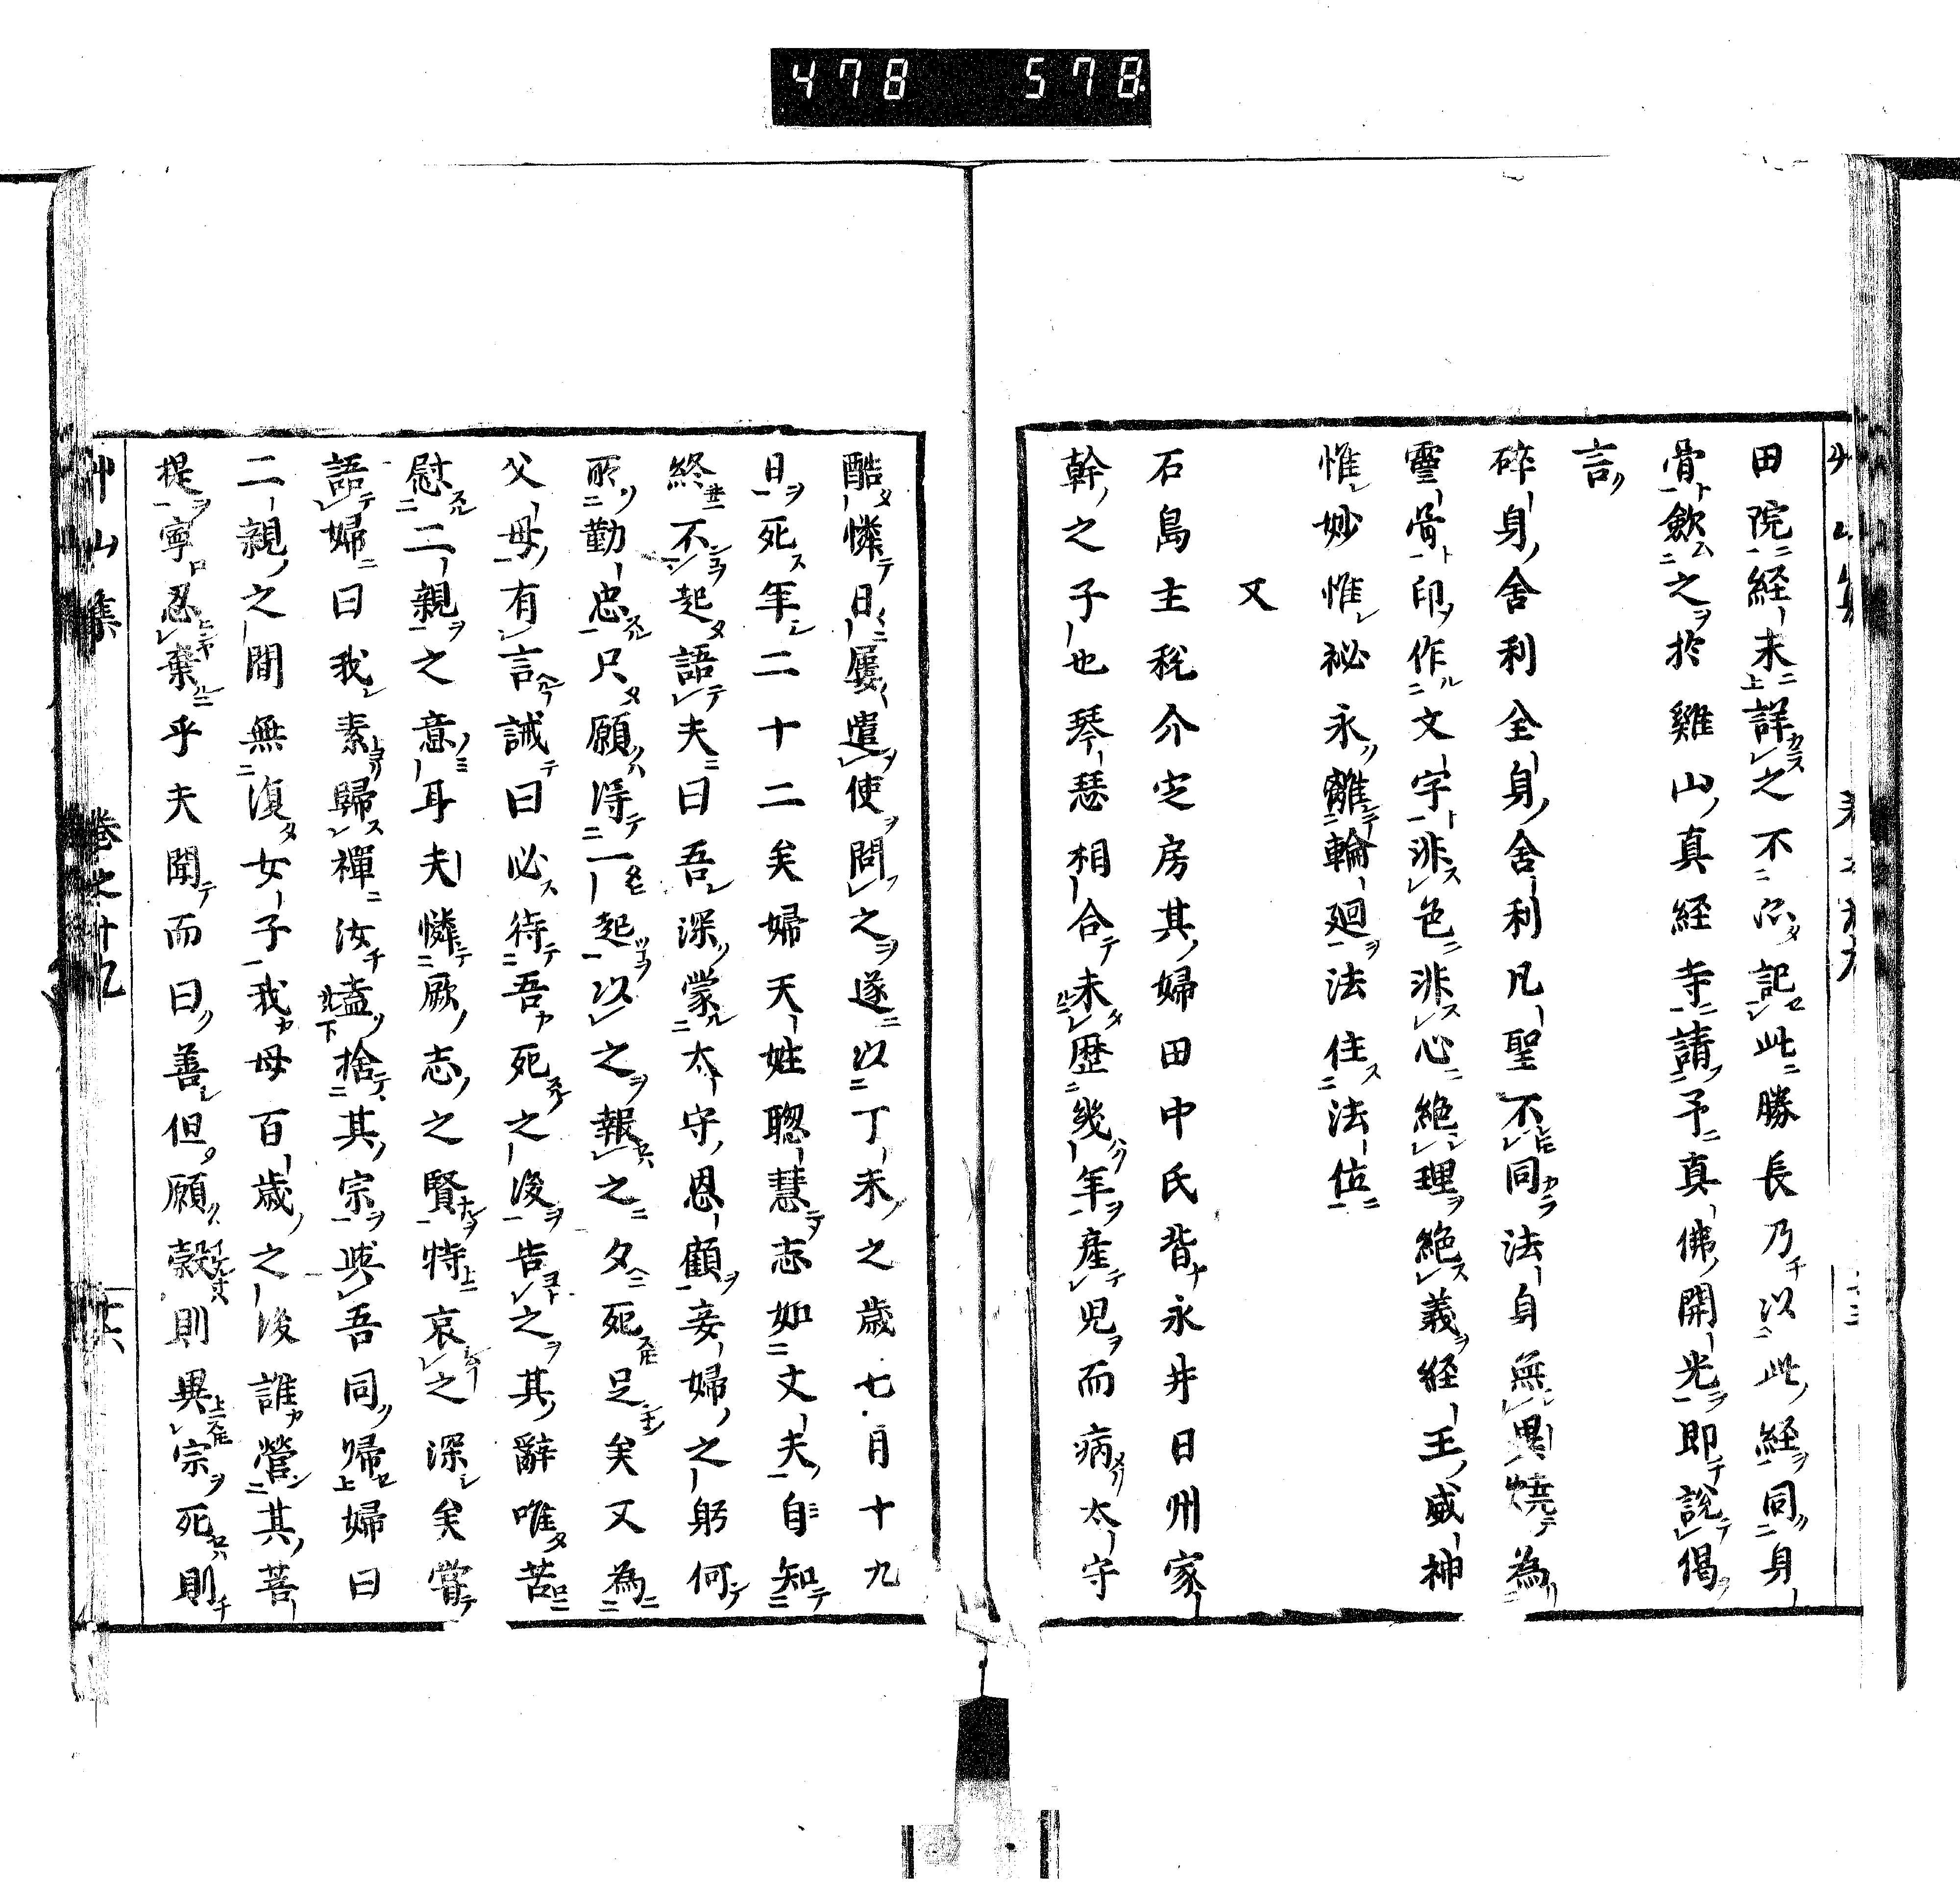 478 578
田院経未詳之不亦記此勝長乃以此経同身
骨斂之於雞山真経寺請予真佛開光即説偈
言
碎身舍利全身舍利凡聖不同法身無異焼為
靈骨印作文字非色非心絶理絶義経王威神
惟妙惟祕永離輪廻法住法位
又
石島主税介定房其婦田中氏背永井日州家
幹之子也琴瑟相合未歴幾年産児而病太守
酷憐日屢遣使問之遂以丁未之歳七月十九
日死年二十二矣婦天姓聡慧志如丈夫自知
終不起語夫曰吾深蒙太守恩顧妾婦之躬何
所勤忠只願得一起以之報之夕死足矣又為
父母有言誡曰必待吾死之後告之其辭唯苦
慰二親之意耳夫憐厥志之賢特哀之深矣嘗
語婦曰我素歸禪汝盍捨其宗與吾同帰婦曰
二親之間無復女子我母百歳之後誰營其菩
提寧忍棄乎夫聞而曰善但願穀則異宗死則
艸山集 巻之十九 十六